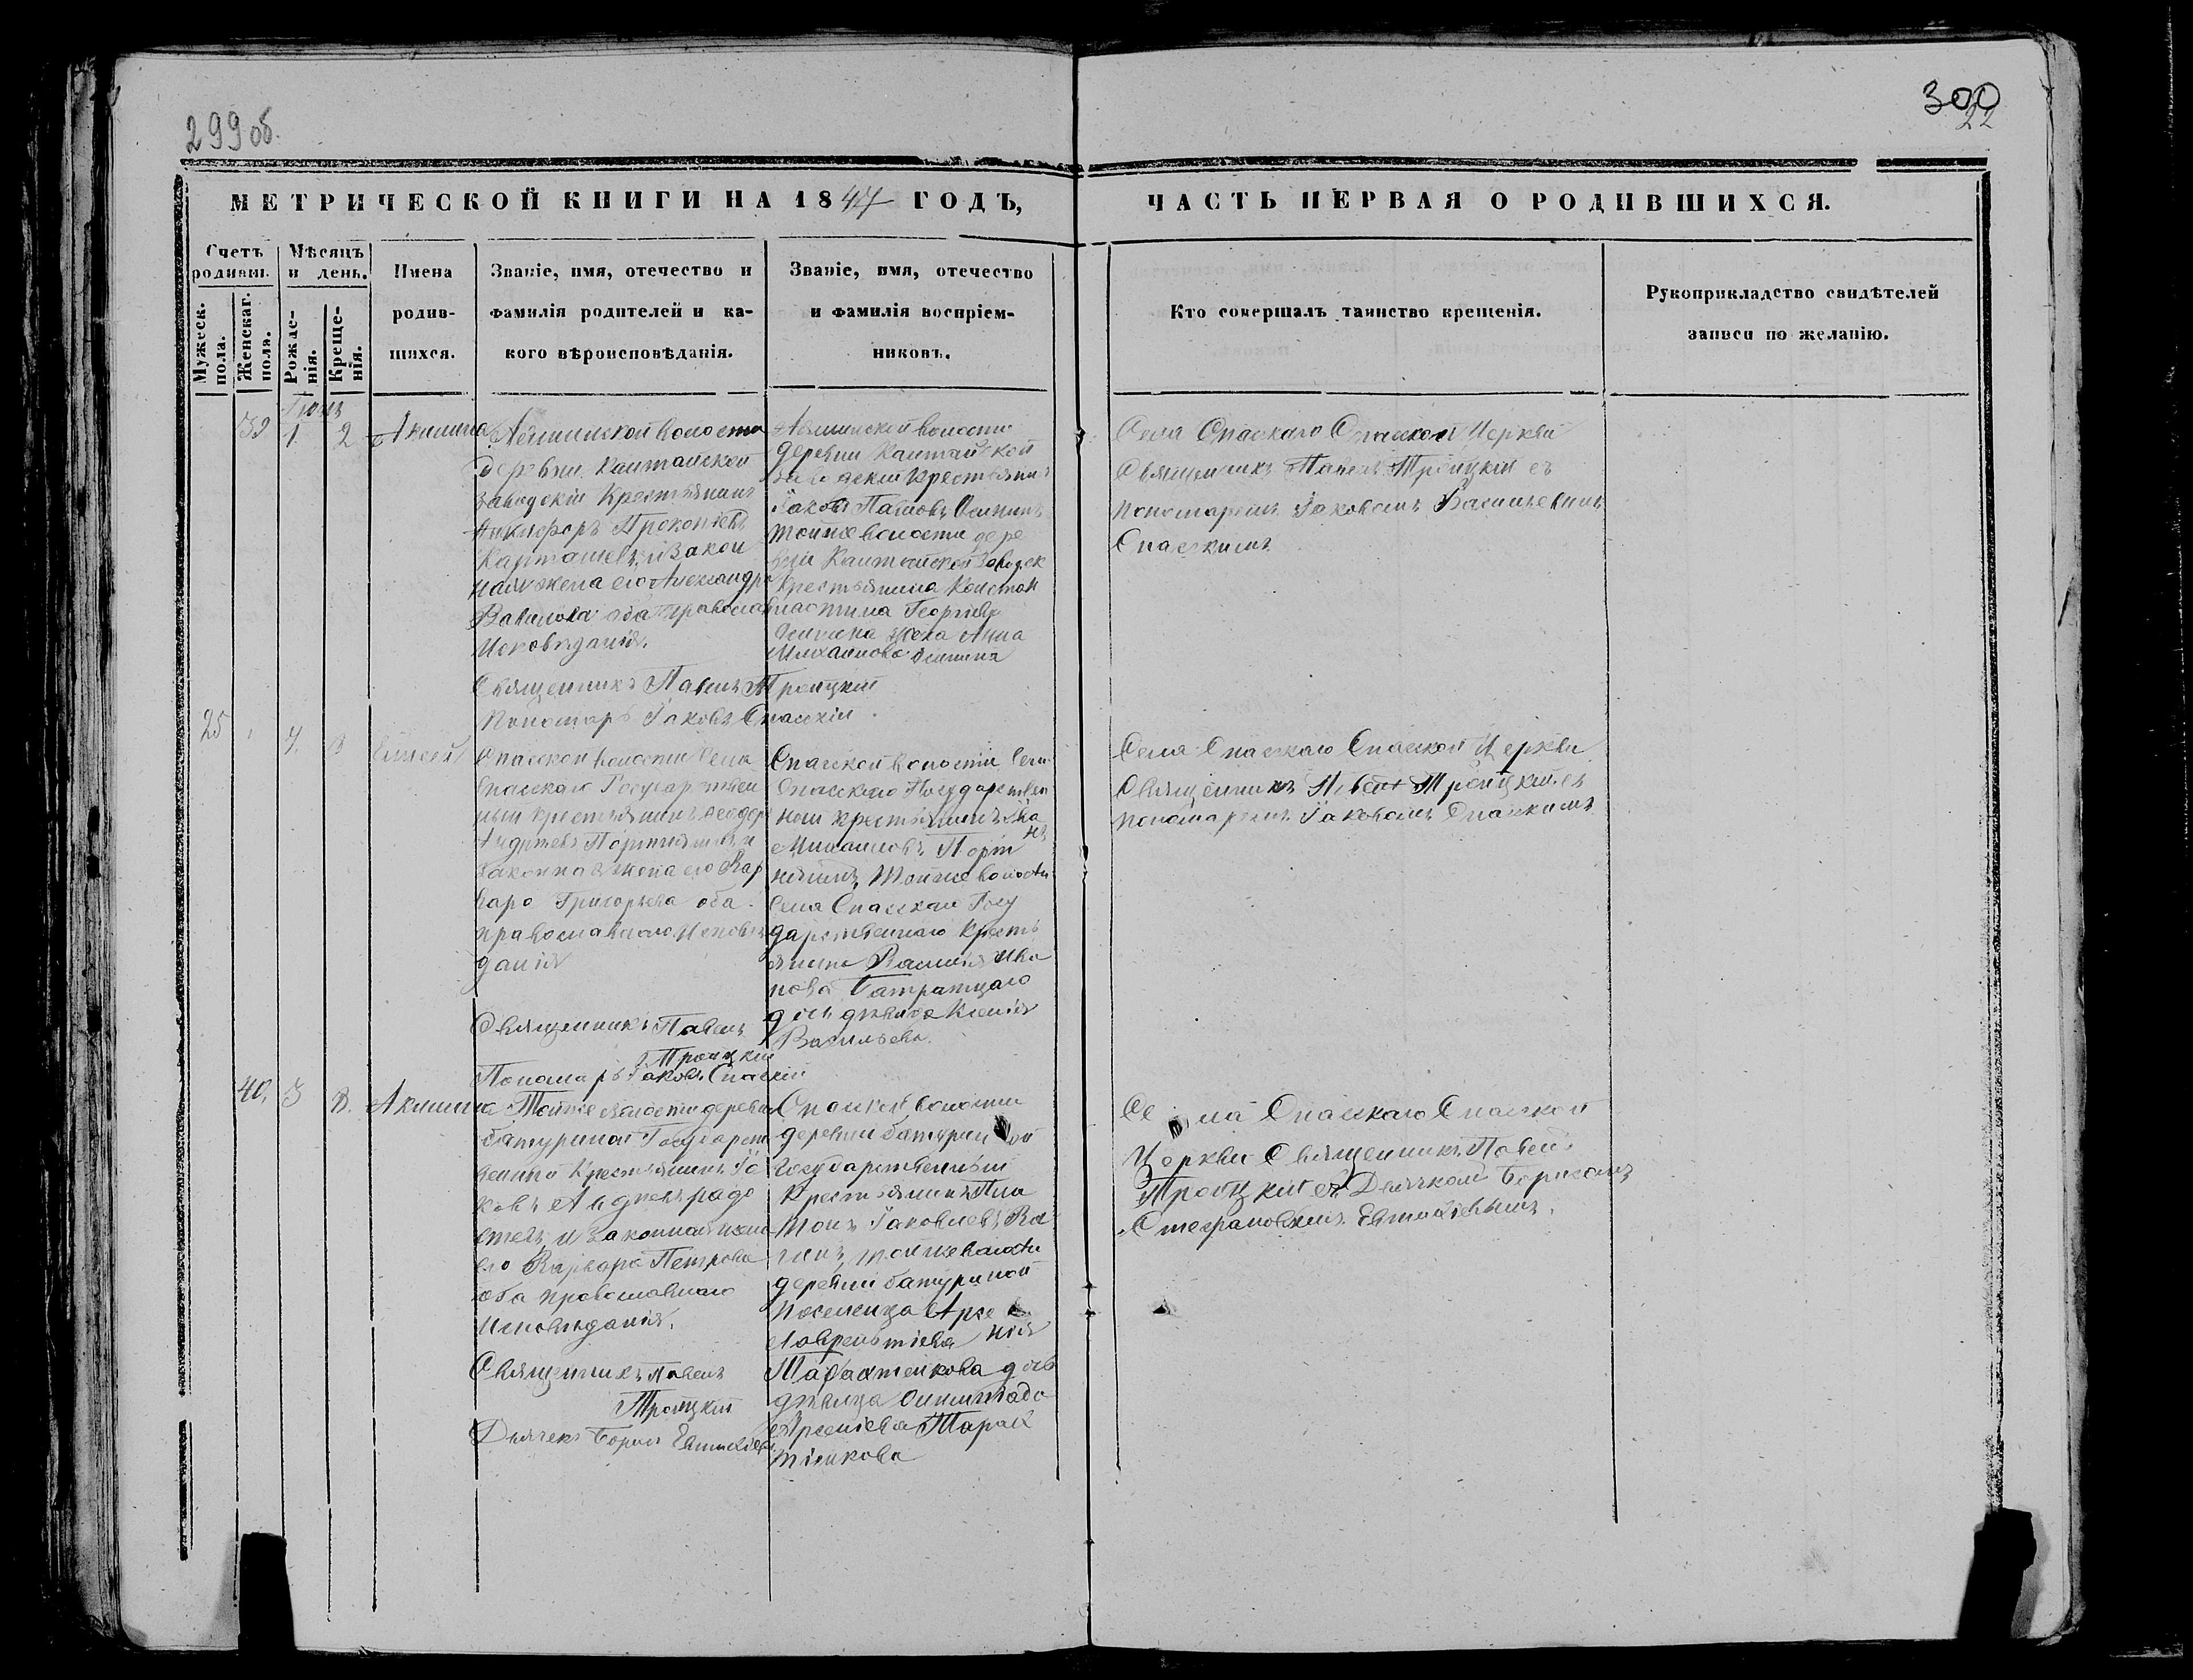 299об.
300
22
МЕТРИЧЕСКОЙ КНИГИ НА 1847 ГОДЪ,
ЧАСТЬ ПЕРВАЯ О РОДИВШИХСЯ.
Счетъ родивш.
Мужеск. пола.
Женскаг. пола.
Мѣсяцъ и день.
Рожденія.
Крещенія.
Имена родившихся.
Званіе, имя, отечество и
фамилія родителей и ка-
кого вѣроисповѣданія.
Званіе, имя, отечество
и фамилія воспріем-
никовъ.
Кто совершалъ таинство крещенія.
Рукоприкладство свидѣтелей
записи по желанію.
39 1 2 Акилина
волости
деревни Каштайской
заводскій Крестьянинъ
Никифоръ Прокопіевъ
Карташевъ, и закон
ная жена его Александра
Вавилова оба православнаго
Исповѣданія.
Священникъ Павелъ Троицкій
Пономарь Іаковъ Спасскій.
волости
деревни Каштайской
заводскій крестьянинъ
Іаковъ
тойже волости дере
вни Каштайской Заводск
Крестьянина Констан
Георгіева
жена Анна
Михайлова
Села Спаскаго Спаской Церкви
Священникъ Павелъ Троицкій съ
пономаремъ Іаковомъ Васильевымъ
Спаскимъ
25 Елисей
Спасской волости Села
Спасскаго Государствен
ный крестьянинъ Ѳеодоръ
Андреевъ Портнягинъ и
законная жена его Вар
вара Григорьева оба
православнаго Исповѣ
данія
Священникъ Павелъ
Троицкій
Пономарь Іаковъ Спасскій
Спасской волости Села
Спасскаго Государствен
ной крестьянинъ Ива
нъ
Михайловъ Порт
нягинъ, Тойже волости
Села Спасскаго Госу
дарственнаго Кресть
янина Василія Ива
нова
дочь дѣвица Ксенія
Васильева.
Села Спасскаго Спасской Церкви
Священникъ Павелъ Троицкій съ
пономаремъ Іаковомъ Спаскимъ
40. 3 8. Акилина
Тойже волости деревни
батуриной Государст
венной Крестьянинъ Іа
ковъ
и законная жена
его Варвара Петрова
оба православнаго
Исповѣданія.
Священникъ Павелъ
Троицкій
Дьячекъ Борисъ
Спаской волости
деревни батуриной
Государственный
Крестьянинъ Пла
тонъ Іаковлевъ
тойже волости
деревни батуриной
поселенца Арсе
нія
Лаврентіева
дочь
дѣвица Олимпіада
Арсеніева
Села Спасскаго Спаской
Церкви Священникъ Павелъ
Троицкій съ Дьячкомъ Борисомъ
Стефановымъ